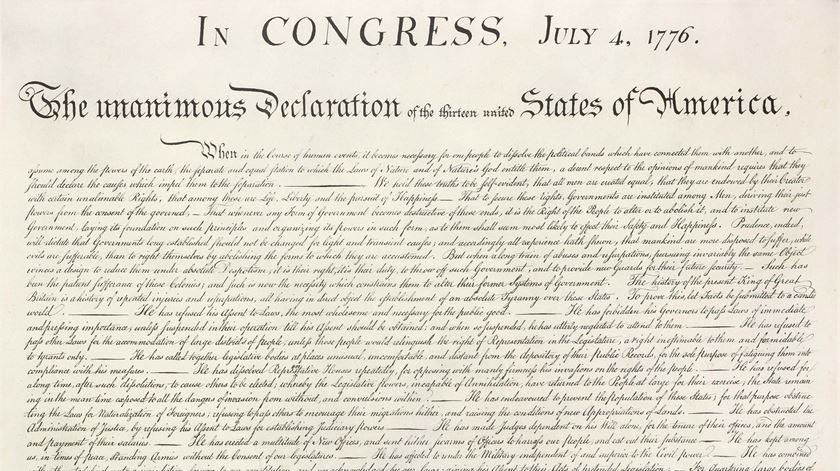 In CONGRESS, July 4, 1776.
The unanimous Declaration of the thirteen united States of America,
When in the Course of human events, it becomes necessary for one people to dissolve the political bands which have connected them with another, and to
assume among the powers of the earth, the separate and equal station to which the Laws of Nature and of Nature's God entitle them, a decent respect to the opinions of mankind requires that they
should declare the causes which impel them to the separation. ——— We hold these truths to be self-evident, that all men are created equal, that they are endowed by their Creator
with certain unalienable Rights, that among these are Life, Liberty and the pursuit of Happiness. — That to secure these rights, Governments are instituted among Men, deriving their just
powers from the consent of the governed, — That whenever any Form of Government becomes destructive of these ends, it is the Right of the People to alter or to abolish it, and to institute new
Government, laying its foundation on such principles and organizing its powers in such form, as to them shall seem most likely to effect their Safety and Happiness. Prudence, indeed,
will dictate that Governments long established should not be changed for light and transient causes; and accordingly all experience hath shewn, that mankind are more disposed to suffer, while
evils are sufferable, than to right themselves by abolishing the forms to which they are accustomed. But when a long train of abuses and usurpations, pursuing invariably the same Object
evinces a design to reduce them under absolute Despotism, it is their right, it is their duty, to throw off such Government, and to provide new Guards for their future security. — Such has
been the patient sufferance of these Colonies; and such is now the necessity which constrains them to alter their former Systems of Government. The history of the present King of Great
Britain is a history of repeated injuries and usurpations, all having in direct object the establishment of an absolute Tyranny over these States. To prove this, let Facts be submitted to a candid
world. ——— He has refused his Assent to Laws, the most wholesome and necessary for the public good. ——— He has forbidden his Governors to pass Laws of immediate
and pressing importance, unless suspended in their operation till his Assent should be obtained; and when so suspended, he has utterly neglected to attend to them. ——— He has refused to
pass other Laws for the accommodation of large districts of people, unless those people would relinquish the right of Representation in the Legislature, a right inestimable to them and formidable
to tyrants only. ——— He has called together legislative bodies at places unusual, uncomfortable, and distant from the depository of their Public Records, for the sole purpose of fatiguing them into
compliance with his measures. ——— He has dissolved Representative Houses repeatedly, for opposing with manly firmness his invasions on the rights of the people. ——— He has refused for
a long time, after such dissolutions, to cause others to be elected; whereby the Legislative powers, incapable of Annihilation, have returned to the People at large for their exercise; the State remain
ing in the mean time exposed to all the dangers of invasion from without, and convulsions within. ——— He has endeavoured to prevent the population of these States; for that purpose obstruc-
ting the Laws for Naturalization of Foreigners; refusing to pass others to encourage their migrations hither, and raising the conditions of new Appropriations of Lands. ——— He has obstructed the
Administration of Justice, by refusing his Assent to Laws for establishing Judiciary powers. ——— He has made Judges dependent on his Will alone, for the tenure of their offices, and the amount
and payment of their salaries. ——— He has erected a multitude of New Offices, and sent hither swarms of Officers to harrass our people, and eat out their substance. — He has kept among
us, in times of peace, Standing Armies without the Consent of our legislatures. — He has affected to render the Military independent of and superior to the Civil power. — He has combined